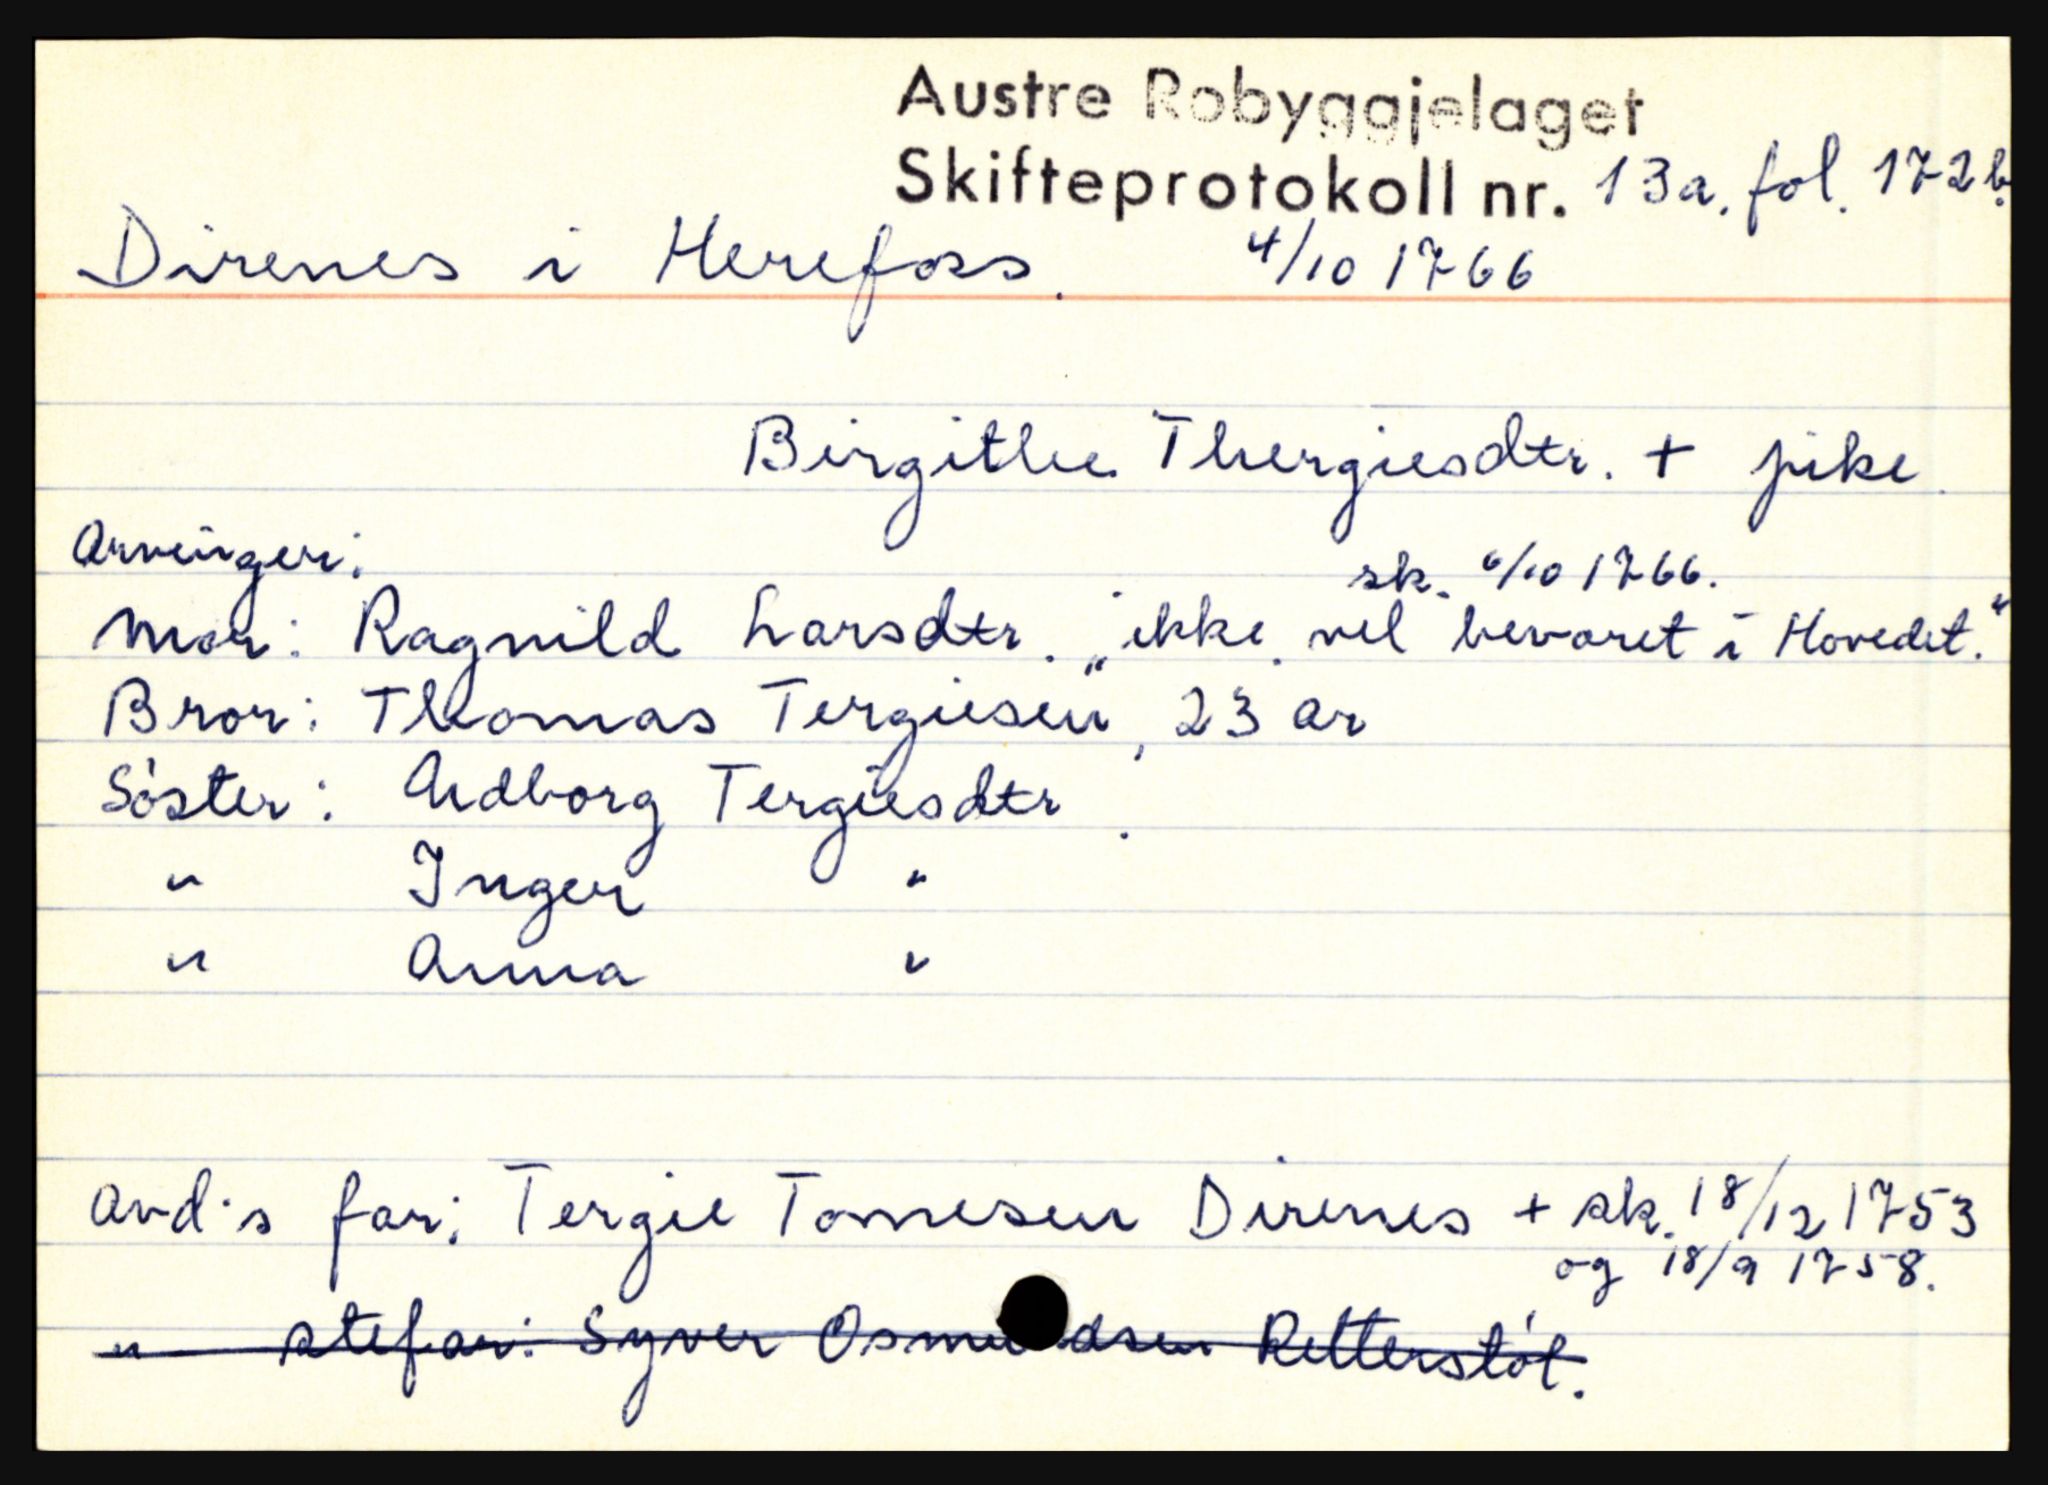 Austre Robyggjelaget
Skifteprotokoll nr. 13a. fol. 172b.
Direnes i Herefoss. 4/10 1766
Birgithe Thergiesdtr. + pike.
Arvinger:
sk. 6/10 1766.
Mor: Ragnild Larsdtr. „ikke vel bevaret i Hovedet.“
Bror: Thomas Tergiesen, 23 ar
Söster: Audborg Tergiesdtr.
" Inger "
" Anna "
avd.s far: Tergie Tomesen Direnes + sk. 18/12 1753
og 18/9 1758.
" stefar: Syver Osmundsen Retterstøl.